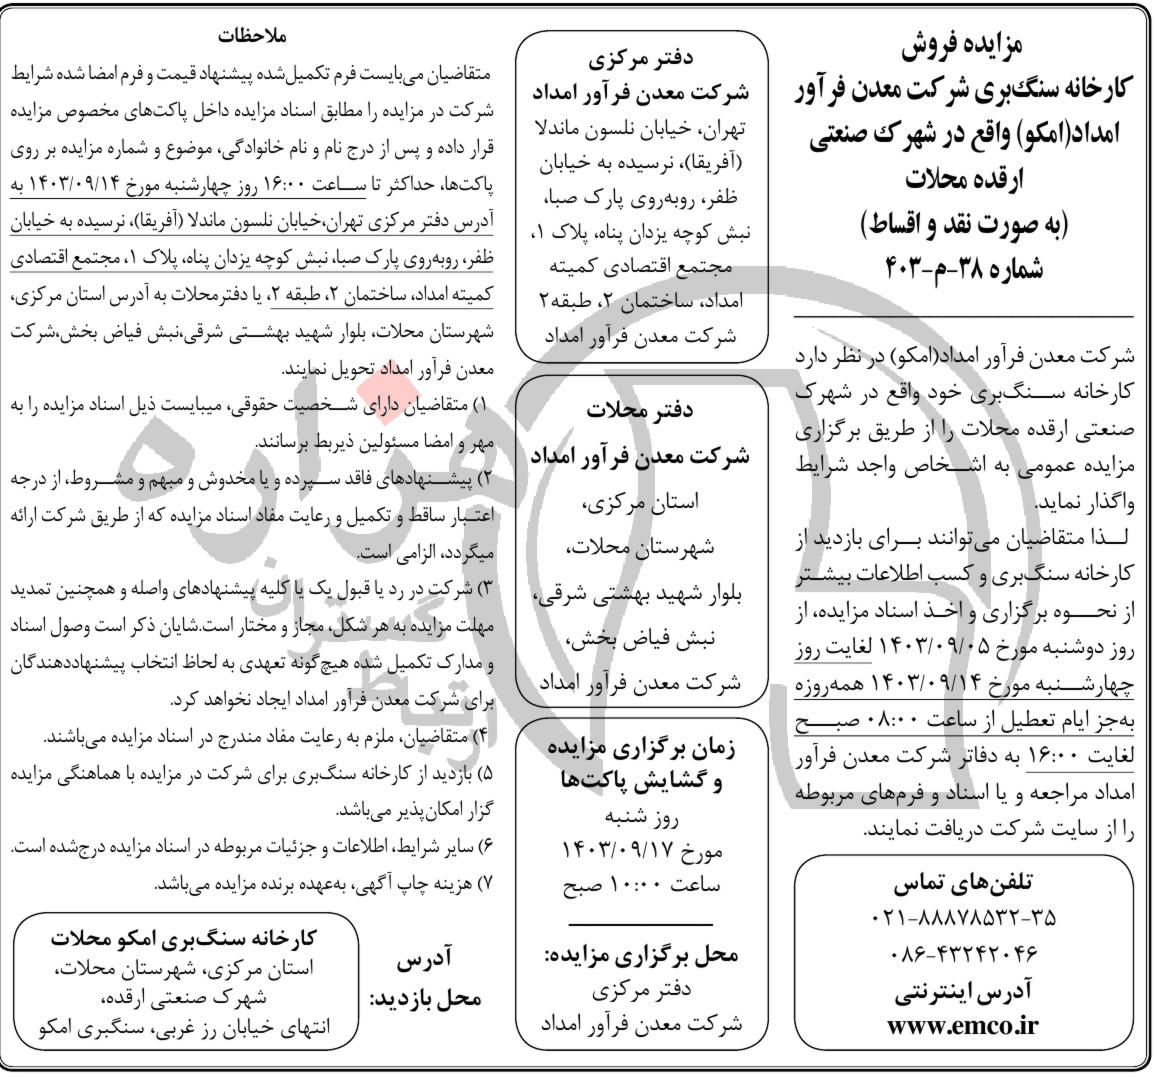 مزایده فروش
کارخانه سنگ‌بری شرکت معدن فرآور
امداد(امکو) واقع در شهرک صنعتی
ارقده محلات
(به صورت نقد و اقساط)
شماره ۳۸-م-۴۰۳
شرکت معدن فرآور امداد(امکو) در نظر دارد
کارخانه سنگ‌بری خود واقع در شهرک
صنعتی ارقده محلات را از طریق برگزاری
مزایده عمومی به اشخاص واجد شرایط
واگذار نماید.
لذا متقاضیان می‌توانند برای بازدید از
کارخانه سنگ‌بری و کسب اطلاعات بیشتر
از نحوه برگزاری و اخذ اسناد مزایده، از
روز دوشنبه مورخ ۱۴۰۳/۰۹/۰۵ لغایت روز
چهارشنبه مورخ ۱۴۰۳/۰۹/۱۴ همه‌روزه
به‌جز ایام تعطیل از ساعت ۰۸:۰۰ صبح
لغایت ۱۶:۰۰ به دفاتر شرکت معدن فرآور
امداد مراجعه و یا اسناد و فرم‌های مربوطه
را از سایت شرکت دریافت نمایند.
تلفن‌های تماس
۰۲۱-۸۸۸۷۸۵۳۲-۳۵
۰۸۶-۴۳۲۴۲۰۴۶
آدرس اینترنتی
www.emco.ir
دفتر مرکزی
شرکت معدن فرآور امداد
تهران، خیابان نلسون ماندلا
(آفریقا)، نرسیده به خیابان
ظفر، روبه‌روی پارک صبا،
نبش کوچه یزدان پناه، پلاک ۱،
مجتمع اقتصادی کمیته
امداد، ساختمان ۲، طبقه۲
شرکت معدن فرآور امداد
دفتر محلات
شرکت معدن فرآور امداد
استان مرکزی،
شهرستان محلات،
بلوار شهید بهشتی شرقی،
نبش فیاض بخش،
شرکت معدن فرآور امداد
زمان برگزاری مزایده
و گشایش پاکت‌ها
روز شنبه
مورخ ۱۴۰۳/۰۹/۱۷
ساعت ۱۰:۰۰ صبح
محل برگزاری مزایده:
دفتر مرکزی
شرکت معدن فرآور امداد
ملاحظات
متقاضیان می‌بایست فرم تکمیل‌شده پیشنهاد قیمت و فرم امضا شده شرایط
شرکت در مزایده را مطابق اسناد مزایده داخل پاکت‌های مخصوص مزایده
قرار داده و پس از درج نام و نام خانوادگی، موضوع و شماره مزایده بر روی
پاکت‌ها، حداکثر تا ساعت ۱۶:۰۰ روز چهارشنبه مورخ ۱۴۰۳/۰۹/۱۴ به
آدرس دفتر مرکزی تهران،خیابان نلسون ماندلا (آفریقا)، نرسیده به خیابان
ظفر، روبه‌روی پارک صبا، نبش کوچه یزدان پناه، پلاک ۱، مجتمع اقتصادی
کمیته امداد، ساختمان ۲، طبقه ۲، یا دفترمحلات به آدرس استان مرکزی،
شهرستان محلات، بلوار شهید بهشتی شرقی،نبش فیاض بخش،شرکت
معدن فرآور امداد تحویل نمایند.
۱) متقاضیان دارای شخصیت حقوقی، میبایست ذیل اسناد مزایده را به
مهر و امضا مسئولین ذیربط برسانند.
۲) پیشنهادهای فاقد سپرده و یا مخدوش و مبهم و مشروط، از درجه
اعتبار ساقط و تکمیل و رعایت مفاد اسناد مزایده که از طریق شرکت ارائه
میگردد، الزامی است.
۳) شرکت در رد یا قبول یک یا کلیه پیشنهادهای واصله و همچنین تمدید
مهلت مزایده به هر شکل، مجاز و مختار است.شایان ذکر است وصول اسناد
و مدارک تکمیل شده هیچ‌گونه تعهدی به لحاظ انتخاب پیشنهاددهندگان
برای شرکت معدن فرآور امداد ایجاد نخواهد کرد.
۴) متقاضیان، ملزم به رعایت مفاد مندرج در اسناد مزایده می‌باشند.
۵) بازدید از کارخانه سنگ‌بری برای شرکت در مزایده با هماهنگی مزایده
گزار امکان‌پذیر می‌باشد.
۶) سایر شرایط، اطلاعات و جزئیات مربوطه در اسناد مزایده درج‌شده است.
۷) هزینه چاپ آگهی، به‌عهده برنده مزایده می‌باشد.
آدرس
محل بازدید:
کارخانه سنگ‌بری امکو محلات
استان مرکزی، شهرستان محلات،
شهرک صنعتی ارقده،
انتهای خیابان رز غربی، سنگبری امکو
هزاره
گستران
ارتباط